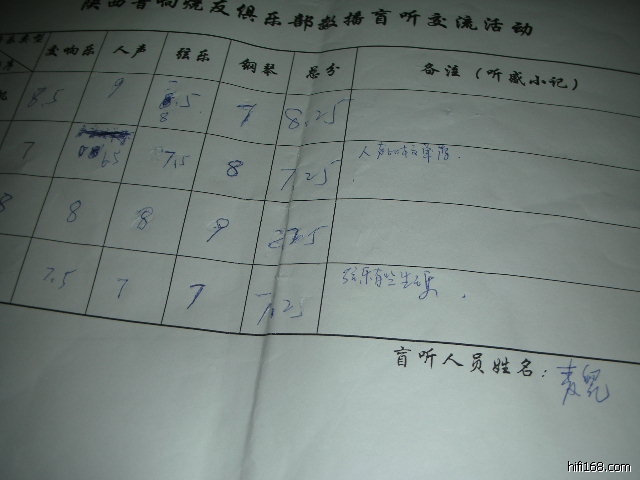 陕西音响烧友俱乐部数播盲听交流活动
交响乐 人声 弦乐 钢琴 总分 备注（听感小记）
8.5 9 8.5 7 8.25
7 6.5 7.5 8 7.25
8 8 8 9
7.5 7 7 7.25 弦乐有些生硬.
盲听人员姓名：
hifi168.com